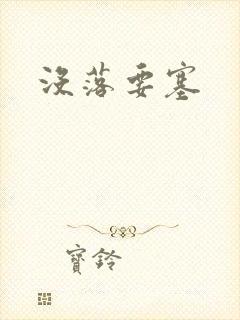 没落要塞
寶鈴